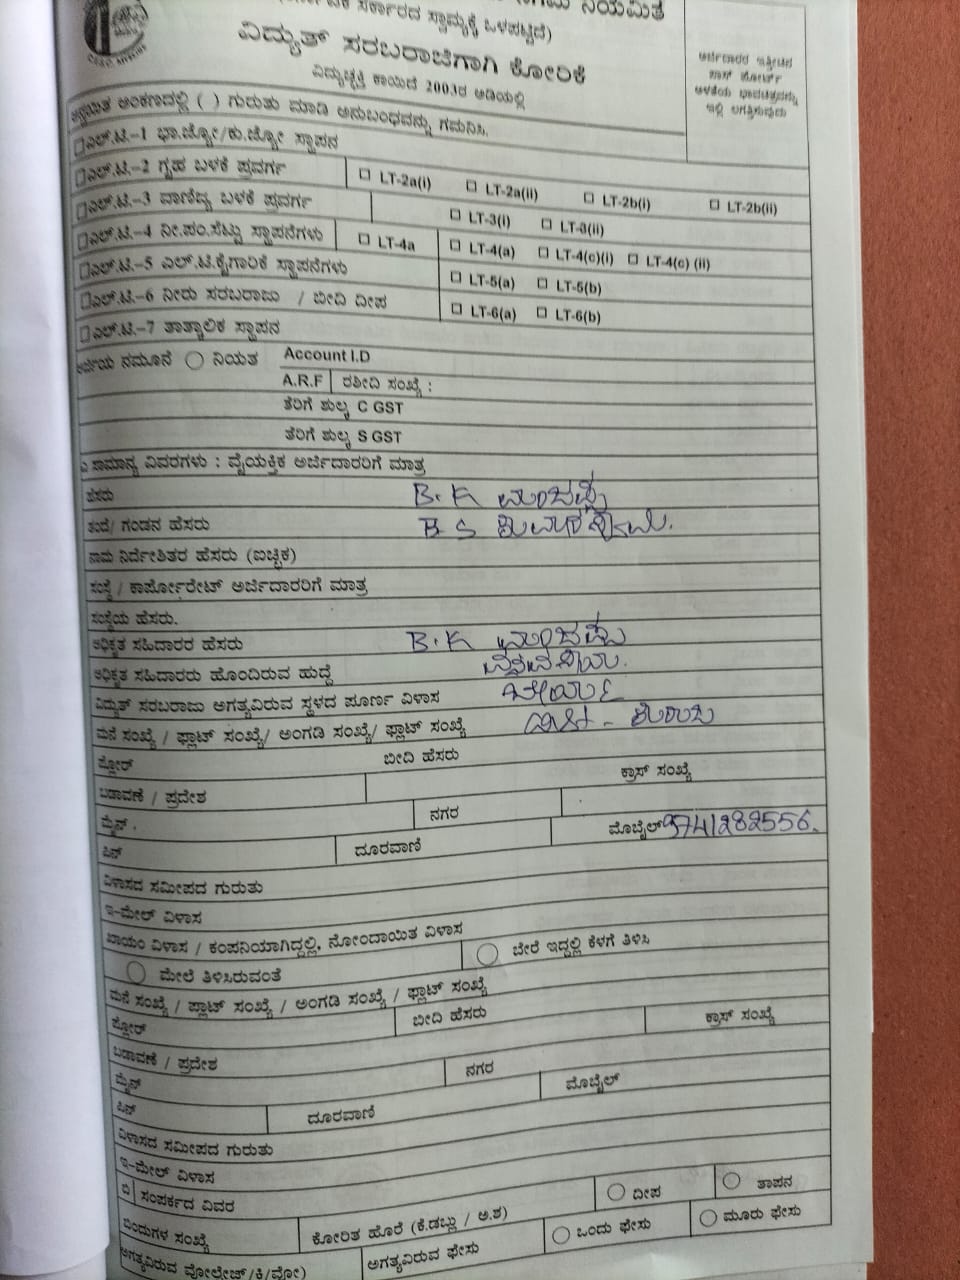 ನಿಯಮಿತ
ಸರ್ಕಾರದ ಸ್ವಾಮ್ಯಕ್ಕೆ ಒಳಪಟ್ಟಿದೆ)
ವಿದ್ಯುತ್ ಸರಬರಾಜಿಗಾಗಿ ಕೋರಿಕೆ
ವಿದ್ಯುಚ್ಛಕ್ತಿ ಕಾಯಿದೆ 2003ರ ಅಡಿಯಲ್ಲಿ
ಅರ್ಜಿದಾರರ ಇತ್ತೀಚಿನ
ಪಾಸ್ ಪೋರ್ಟ್
ಅಳತೆಯ ಭಾವಚಿತ್ರವನ್ನು
ಇಲ್ಲಿ ಲಗತ್ತಿಸುವುದು
ಅನ್ವಯಿತ ಅಂಕಣದಲ್ಲಿ ( ) ಗುರುತು ಮಾಡಿ ಅನುಬಂಧವನ್ನು ಗಮನಿಸಿ.
□ಎಲ್.ಟಿ.-1 ಭಾ.ಜ್ಯೋ/ಕು.ಜ್ಯೋ ಸ್ಥಾಪನ
□ಎಲ್.ಟಿ.-2 ಗೃಹ ಬಳಕೆ ಪ್ರವರ್ಗ □ LT-2a(i) □ LT-2a(ii) □ LT-2b(i) □ LT-2b(ii)
□ಎಲ್.ಟಿ.-3 ವಾಣಿಜ್ಯ ಬಳಕೆ ಪ್ರವರ್ಗ □ LT-3(i) □ LT-3(ii)
□ಎಲ್.ಟಿ.-4 ನೀ.ಪಂ.ಸೆಟ್ಟು ಸ್ಥಾಪನೆಗಳು □ LT-4a □ LT-4(a) □ LT-4(c)(i) □ LT-4(c) (ii)
□ಎಲ್.ಟಿ.-5 ಎಲ್.ಟಿ.ಕೈಗಾರಿಕೆ ಸ್ಥಾಪನೆಗಳು □ LT-5(a) □ LT-5(b)
□ಎಲ್.ಟಿ.-6 ನೀರು ಸರಬರಾಜು / ಬೀದಿ ದೀಪ □ LT-6(a) □ LT-6(b)
□ಎಲ್.ಟಿ.-7 ತಾತ್ಕಾಲಿಕ ಸ್ಥಾಪನ
ಅರ್ಜಿಯ ನಮೂನೆ ○ ನಿಯತ Account I.D
A.R.F ರಶೀದಿ ಸಂಖ್ಯೆ :
ತೆರಿಗೆ ಶುಲ್ಕ C GST
ತೆರಿಗೆ ಶುಲ್ಕ S GST
ಎ ಸಾಮಾನ್ಯ ವಿವರಗಳು : ವೈಯಕ್ತಿಕ ಅರ್ಜಿದಾರರಿಗೆ ಮಾತ್ರ
ಹೆಸರು B.K ಮಂಜಪ್ಪ
ತಂದೆ/ ಗಂಡನ ಹೆಸರು B S
ನಾಮ ನಿರ್ದೇಶಿತರ ಹೆಸರು (ಐಚ್ಛಿಕ)
ಸಂಸ್ಥೆ / ಕಾರ್ಪೋರೇಟ್ ಅರ್ಜಿದಾರರಿಗೆ ಮಾತ್ರ
ಸಂಸ್ಥೆಯ ಹೆಸರು.
ಅಧಿಕೃತ ಸಹಿದಾರರ ಹೆಸರು B.K ಮಂಜಪ್ಪ
ಅಧಿಕೃತ ಸಹಿದಾರರು ಹೊಂದಿರುವ ಹುದ್ದೆ
ವಿದ್ಯುತ್ ಸರಬರಾಜು ಅಗತ್ಯವಿರುವ ಸ್ಥಳದ ಪೂರ್ಣ ವಿಳಾಸ
ಮನೆ ಸಂಖ್ಯೆ / ಫ್ಲಾಟ್ ಸಂಖ್ಯೆ/ ಅಂಗಡಿ ಸಂಖ್ಯೆ/ ಫ್ಲಾಟ್ ಸಂಖ್ಯೆ
ಫ್ಲೋರ್ ಬೀದಿ ಹೆಸರು ಕ್ರಾಸ್ ಸಂಖ್ಯೆ
ಬಡಾವಣೆ / ಪ್ರದೇಶ
ಮೈನ್ . ನಗರ
ಪಿನ್ ದೂರವಾಣಿ ಮೊಬೈಲ್ 9741282556.
ವಿಳಾಸದ ಸಮೀಪದ ಗುರುತು
ಇ-ಮೇಲ್ ವಿಳಾಸ
ಖಾಯಂ ವಿಳಾಸ / ಕಂಪನಿಯಾಗಿದ್ದಲ್ಲಿ, ನೋಂದಾಯಿತ ವಿಳಾಸ
○ ಮೇಲೆ ತಿಳಿಸಿರುವಂತೆ ○ ಬೇರೆ ಇದ್ದಲ್ಲಿ ಕೆಳಗೆ ತಿಳಿಸಿ
ಮನೆ ಸಂಖ್ಯೆ / ಪ್ಲಾಟ್ ಸಂಖ್ಯೆ / ಅಂಗಡಿ ಸಂಖ್ಯೆ / ಫ್ಲಾಟ್ ಸಂಖ್ಯೆ
ಫ್ಲೋರ್ ಬೀದಿ ಹೆಸರು ಕ್ರಾಸ್ ಸಂಖ್ಯೆ
ಬಡಾವಣೆ / ಪ್ರದೇಶ
ಮೈನ್ ನಗರ
ಪಿನ್ ದೂರವಾಣಿ ಮೊಬೈಲ್
ವಿಳಾಸದ ಸಮೀಪದ ಗುರುತು
ಇ-ಮೇಲ್ ವಿಳಾಸ
ಬಿ ಸಂಪರ್ಕದ ವಿವರ ○ ದೀಪ ○ ತಾಪನ
ಬಿಂದುಗಳ ಸಂಖ್ಯೆ ಕೋರಿತ ಹೊರೆ (ಕೆ.ಡಬ್ಲು / ಅ.ಶ)
ಅಗತ್ಯವಿರುವ ವೋಲ್ಟೇಜ್/ಕಿ/ವೋ) ಅಗತ್ಯವಿರುವ ಫೇಸು ○ ಒಂದು ಫೇಸು ○ ಮೂರು ಫೇಸು